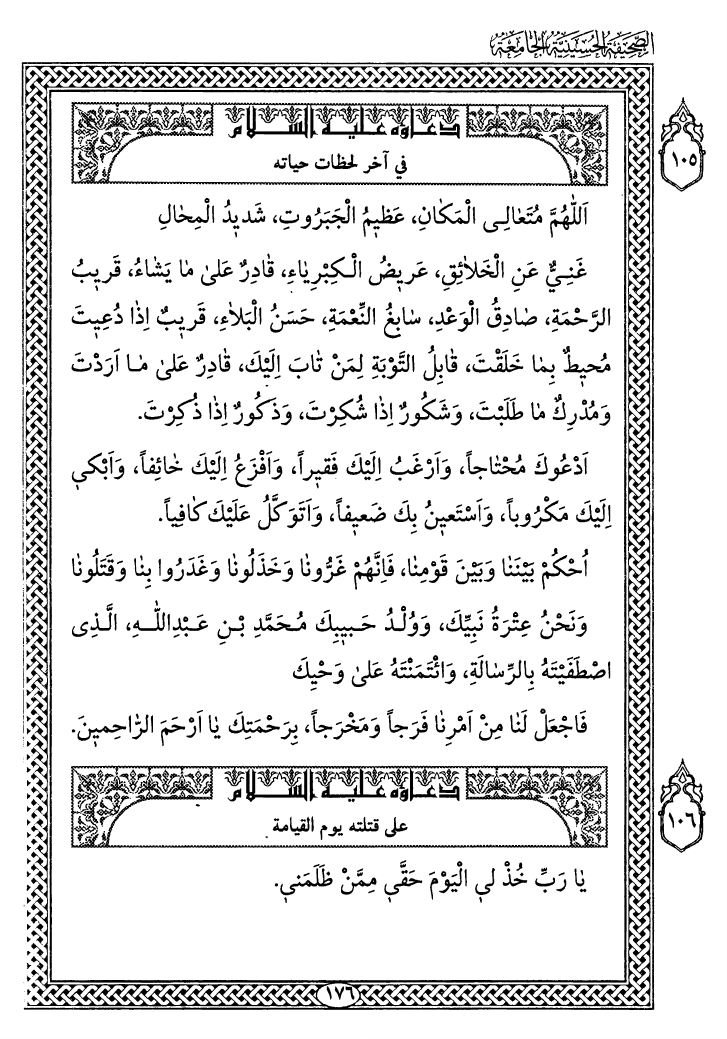 الصَّحِيفَةُ الْحُسَيْنِيَّةُ الْجَامِعَةُ
١٠٥
دعاؤه عليه السلام
في آخر لحظات حياته
اَللّٰهُمَّ مُتَعٰالِي الْمَكٰانِ، عَظيمُ الْجَبَرُوتِ، شَديدُ الْمِحٰالِ
غَنِيٌّ عَنِ الْخَلاٰئِقِ، عَريضُ الْكِبْرِيٰاءِ، قٰادِرٌ عَلىٰ مٰا يَشٰاءُ، قَريبُ
الرَّحْمَةِ، صٰادِقُ الْوَعْدِ، سٰابِغُ النِّعْمَةِ، حَسَنُ الْبَلاٰءِ، قَريبٌ اِذٰا دُعِيتَ
مُحيطٌ بِمٰا خَلَقْتَ، قٰابِلُ التَّوْبَةِ لِمَنْ تٰابَ اِلَيْكَ، قٰادِرٌ عَلىٰ مٰا اَرَدْتَ
وَمُدْرِكٌ مٰا طَلَبْتَ، وَشَكُورٌ اِذٰا شُكِرْتَ، وَذَكُورٌ اِذٰا ذُكِرْتَ.
اَدْعُوكَ مُحْتٰاجاً، وَاَرْغَبُ اِلَيْكَ فَقيراً، وَاَفْزَعُ اِلَيْكَ خٰائِفاً، وَاَبْكي
اِلَيْكَ مَكْرُوباً، وَاَسْتَعينُ بِكَ ضَعيفاً، وَاَتَوَكَّلُ عَلَيْكَ كٰافِياً.
اُحْكُمْ بَيْنَنٰا وَبَيْنَ قَوْمِنٰا، فَاِنَّهُمْ غَرُّونٰا وَخَذَلُونٰا وَغَدَرُوا بِنٰا وَقَتَلُونٰا
وَنَحْنُ عِتْرَةُ نَبِيِّكَ، وَوُلْدُ حَبيبِكَ مُحَمَّدِ بْنِ عَبْدِاللّٰهِ، الَّذِى
اصْطَفَيْتَهُ بِالرِّسٰالَةِ، وَائْتَمَنْتَهُ عَلىٰ وَحْيِكَ
فَاجْعَلْ لَنٰا مِنْ اَمْرِنٰا فَرَجاً وَمَخْرَجاً، بِرَحْمَتِكَ يٰا اَرْحَمَ الرّٰاحِمينَ.
١٠٦
دعاؤه عليه السلام
على قتلته يوم القيامة
يٰا رَبِّ خُذْ لِي الْيَوْمَ حَقّي مِمَّنْ ظَلَمَني.
١٧٦